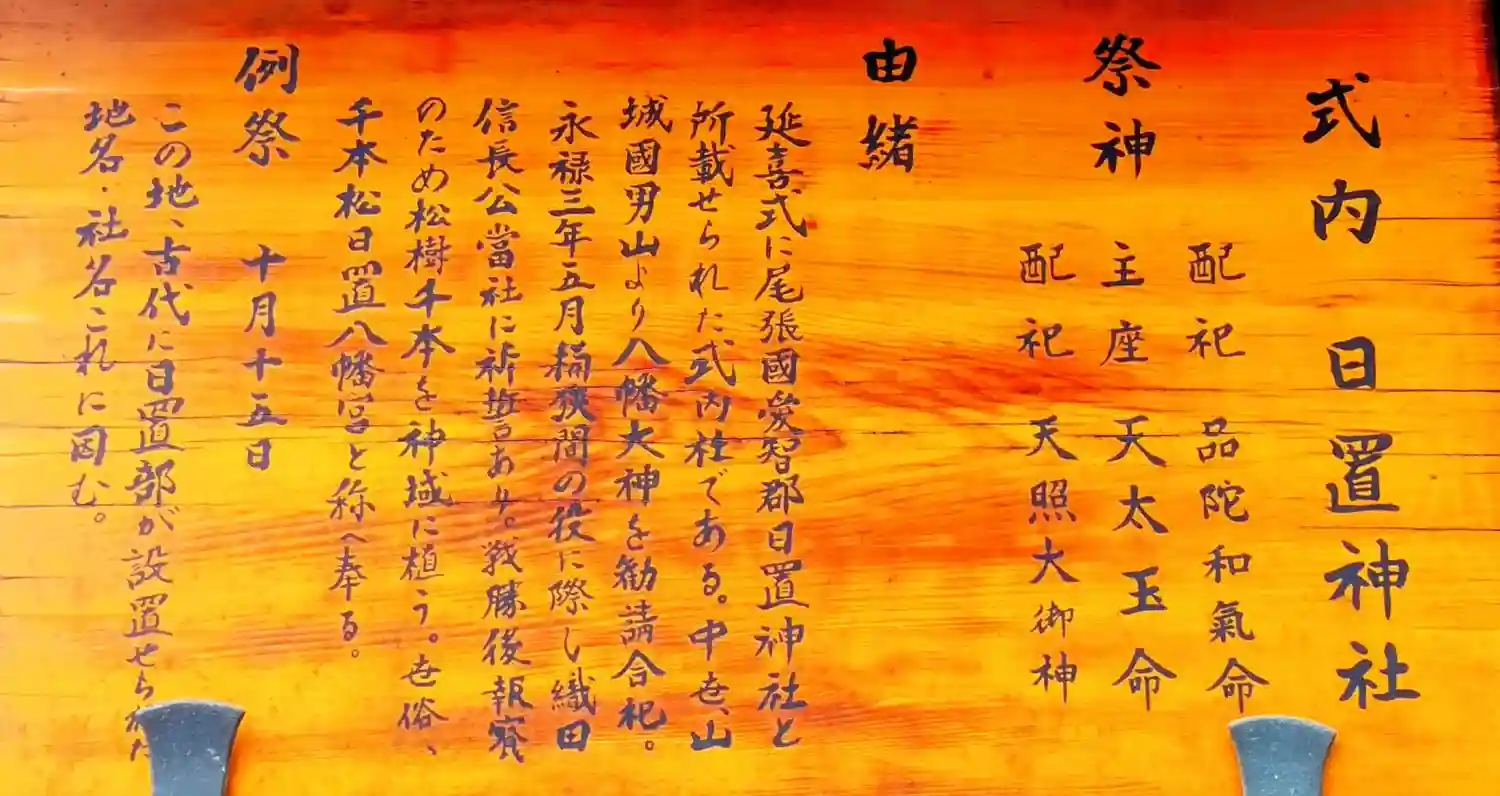 式内 日置神社
祭神
配祀 品陀和氣命
主座 天太玉命
配祀 天照大御神
由緒
延喜式に尾張國愛智郡日置神社と
所載せられた式内社である。中世、山
城國男山より八幡大神を勧請合祀。
永禄三年五月桶狭間の役に際し織田
信長公當社に祈誓あり。戦勝後報賽
のため松樹千本を神域に植う。世俗、
千本松日置八幡宮と称へ奉る。
例祭 十月十五日
この地、古代に日置部が設置せられた
地名・社名これに因む。